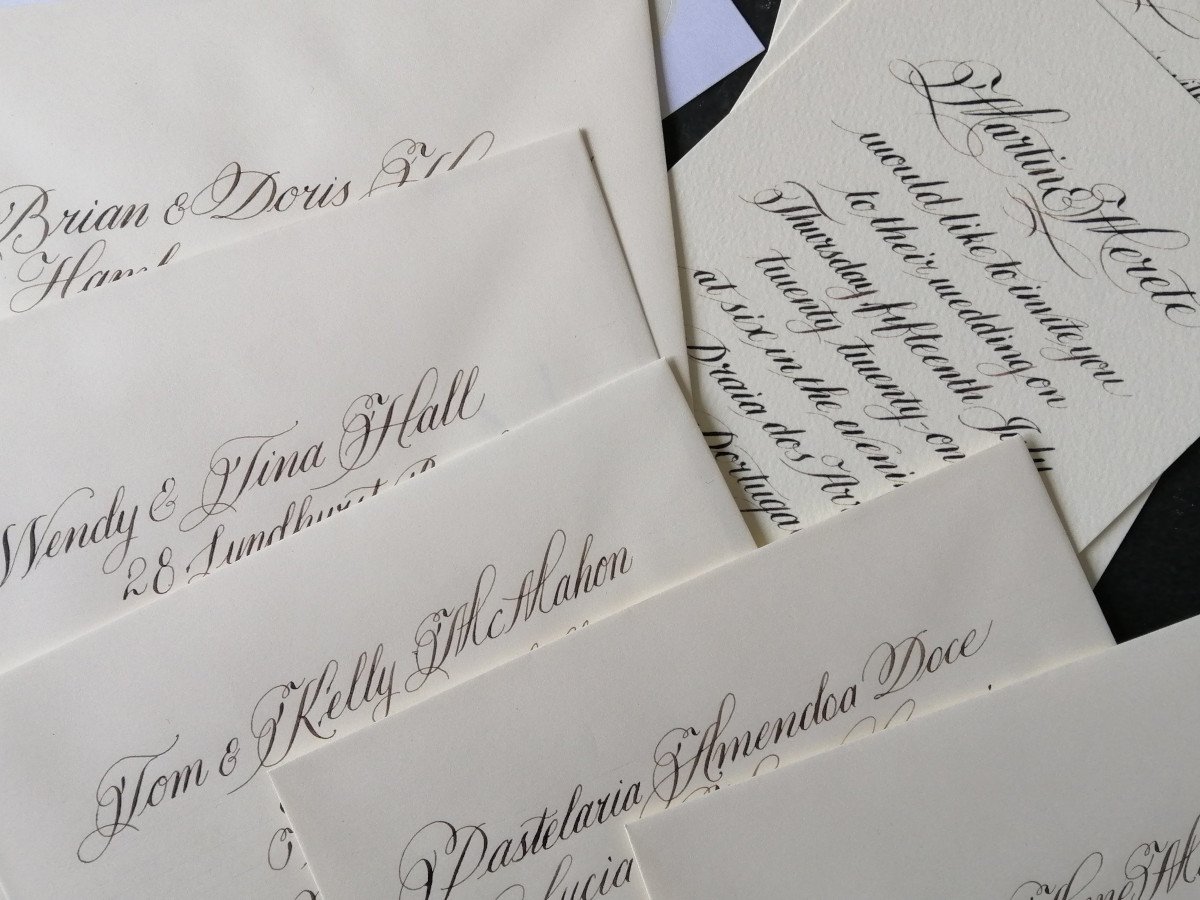 Brian & Doris
Wendy & Tina Hall
28 Lundhurst
Tom & Kelly McMahon
Pastelaria Amendoa Doce
Lucia
Martin & Merete
would like to invite you
to their wedding on
Thursday, fifteenth July
twenty twenty-on
at six in the eveni
Praia dos Ar
Portuga